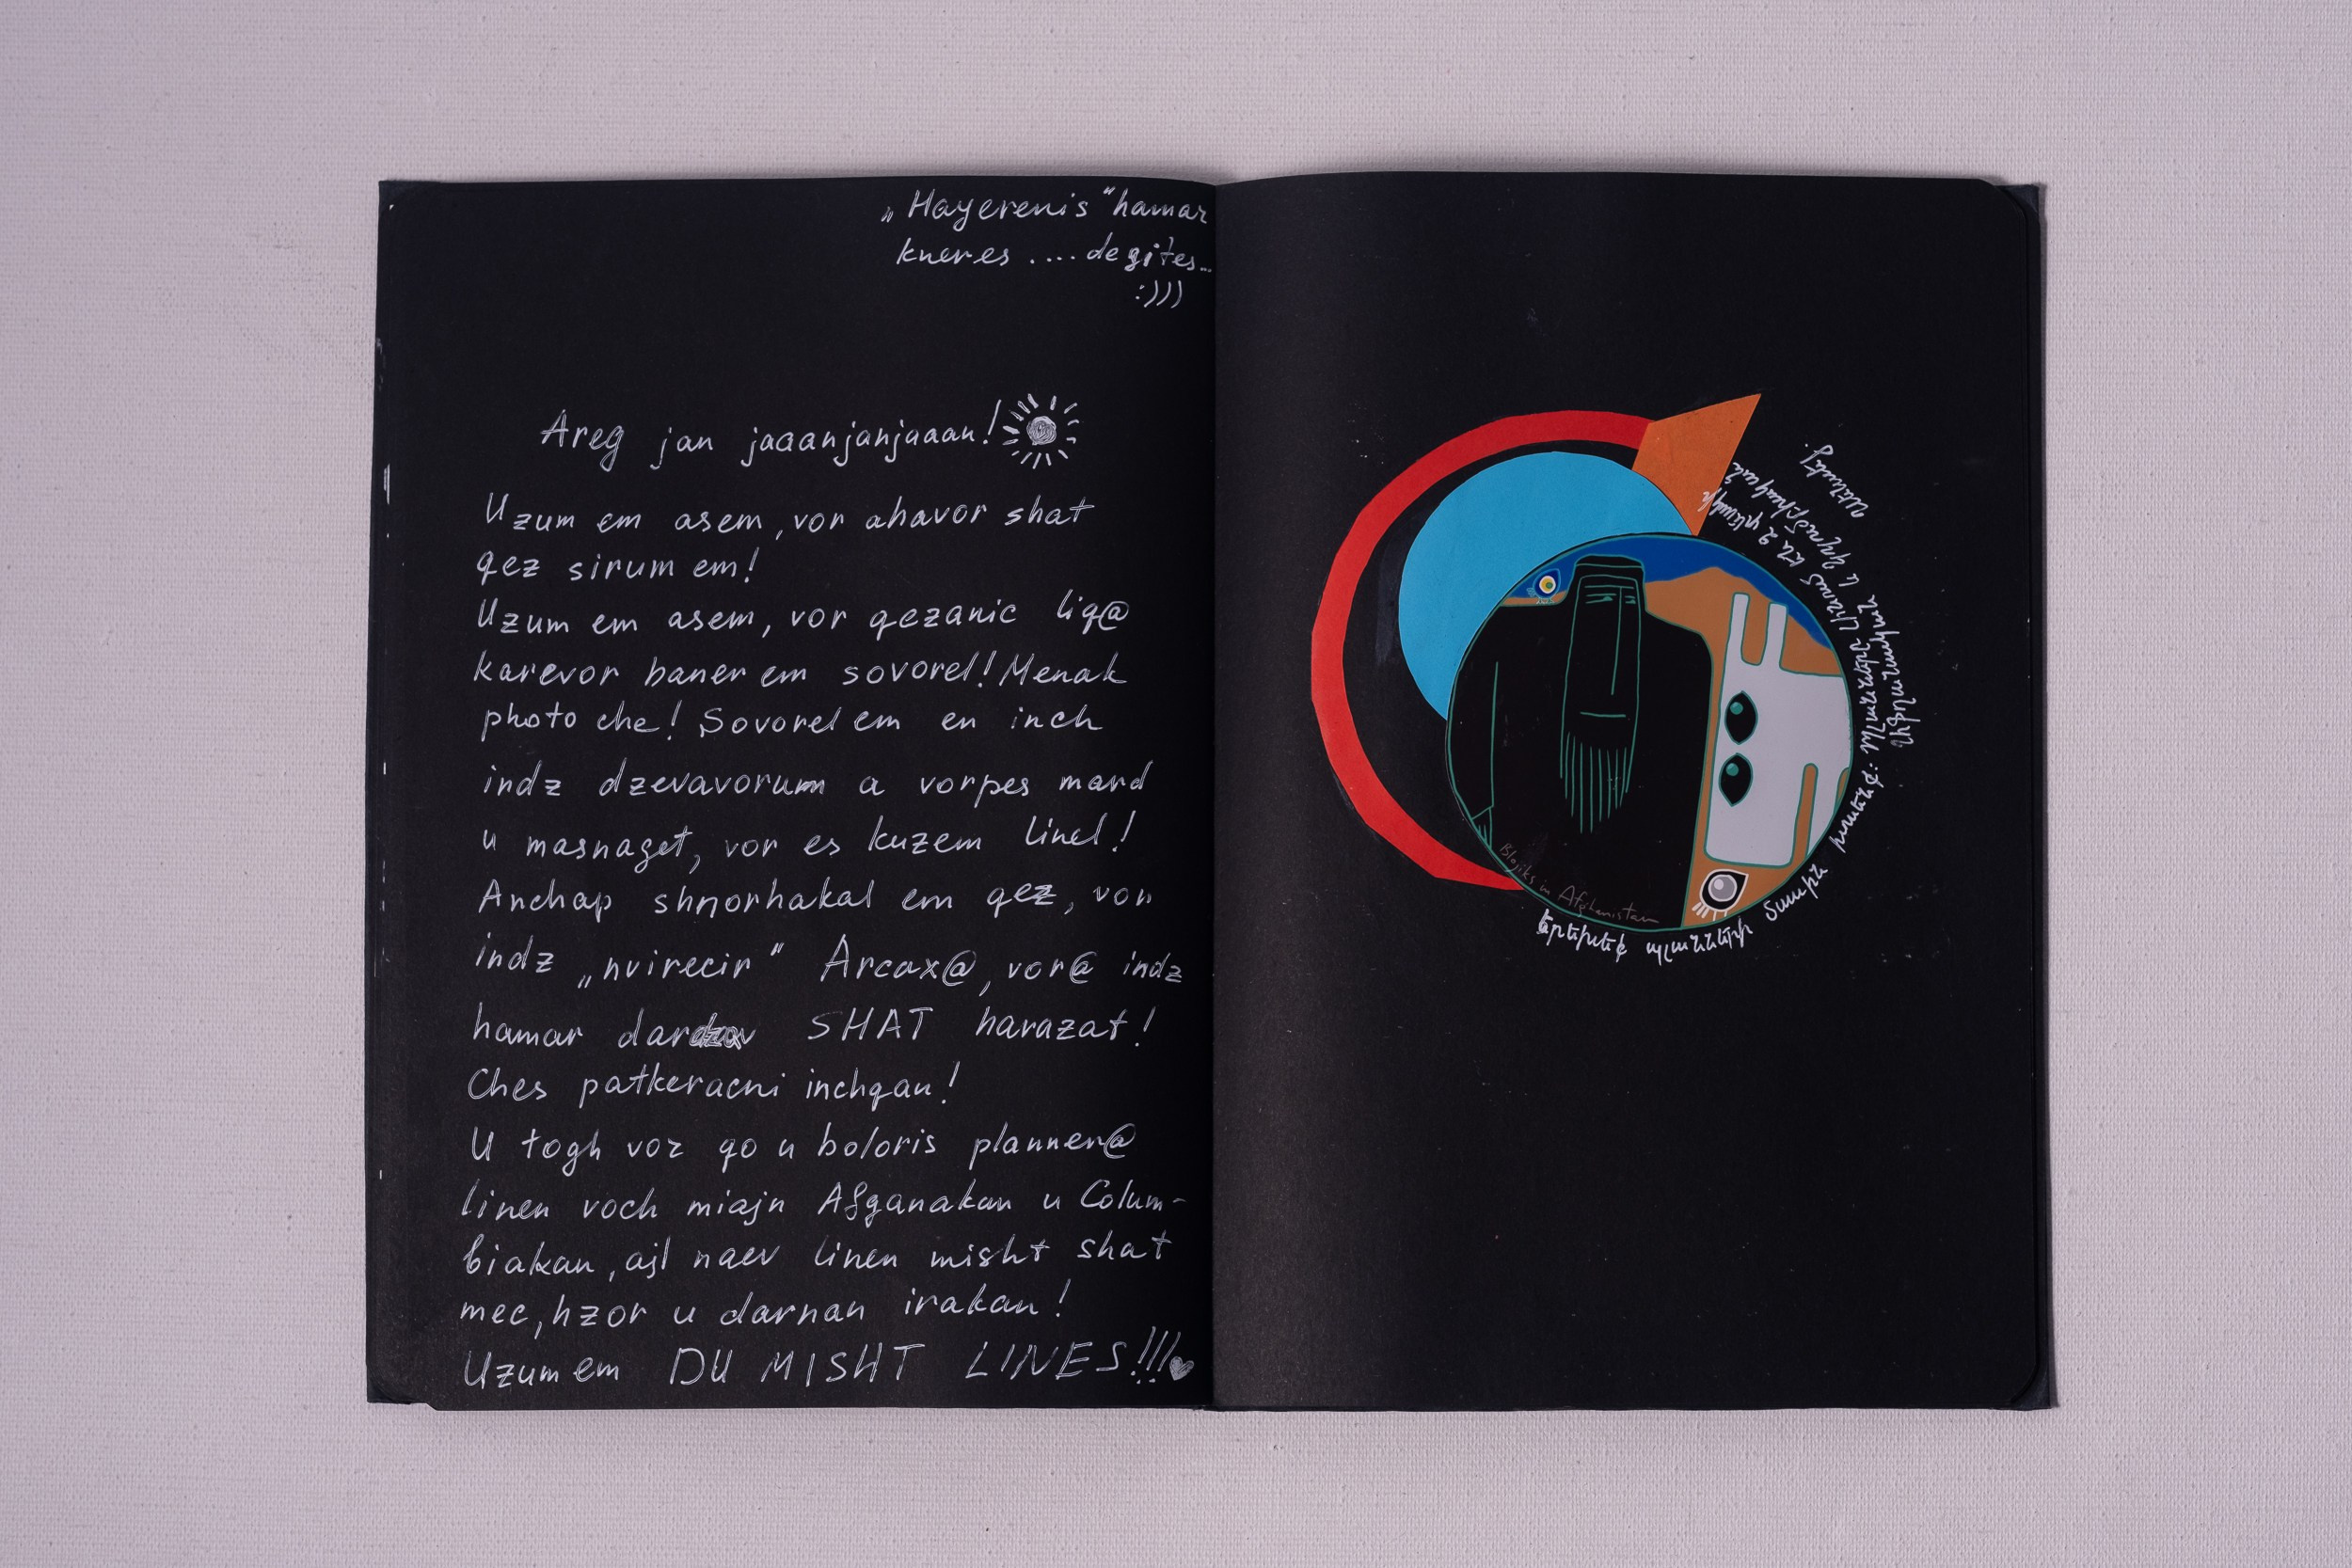 „Hayerenis“ hamar
kneres .... de gites...
:)))
Areg jan jaaanjanjaaan!
Uzum em asem, vor ahavor shat
qez sirum em!
Uzum em asem, vor qezanic liq@
karevor baner em sovorel! Menak
photo che! Sovorel em en inch
indz dzevavorum a vorpes mard
u masnaget, vor es kuzem linel!
Anchap shnorhakal em qez, vor
indz „nvirecir“ Arcax@, vor@ indz
hamar dardzav SHAT harazat!
Ches patkeracni inchqan!
U togh vor qo u boloris planner@
linen voch miajn Afganakan u Colum-
biakan, ajl naev linen misht shat
mec, hzor u darnan irakan!
Uzum em DU MISHT LINES!!!
Blojiks in Afghanistan
Երբեխտեվ պլանների մասին խոսենք: Պլանները Լիառատ են 2 գլխանի
Աֆղանական և կոլումբիական